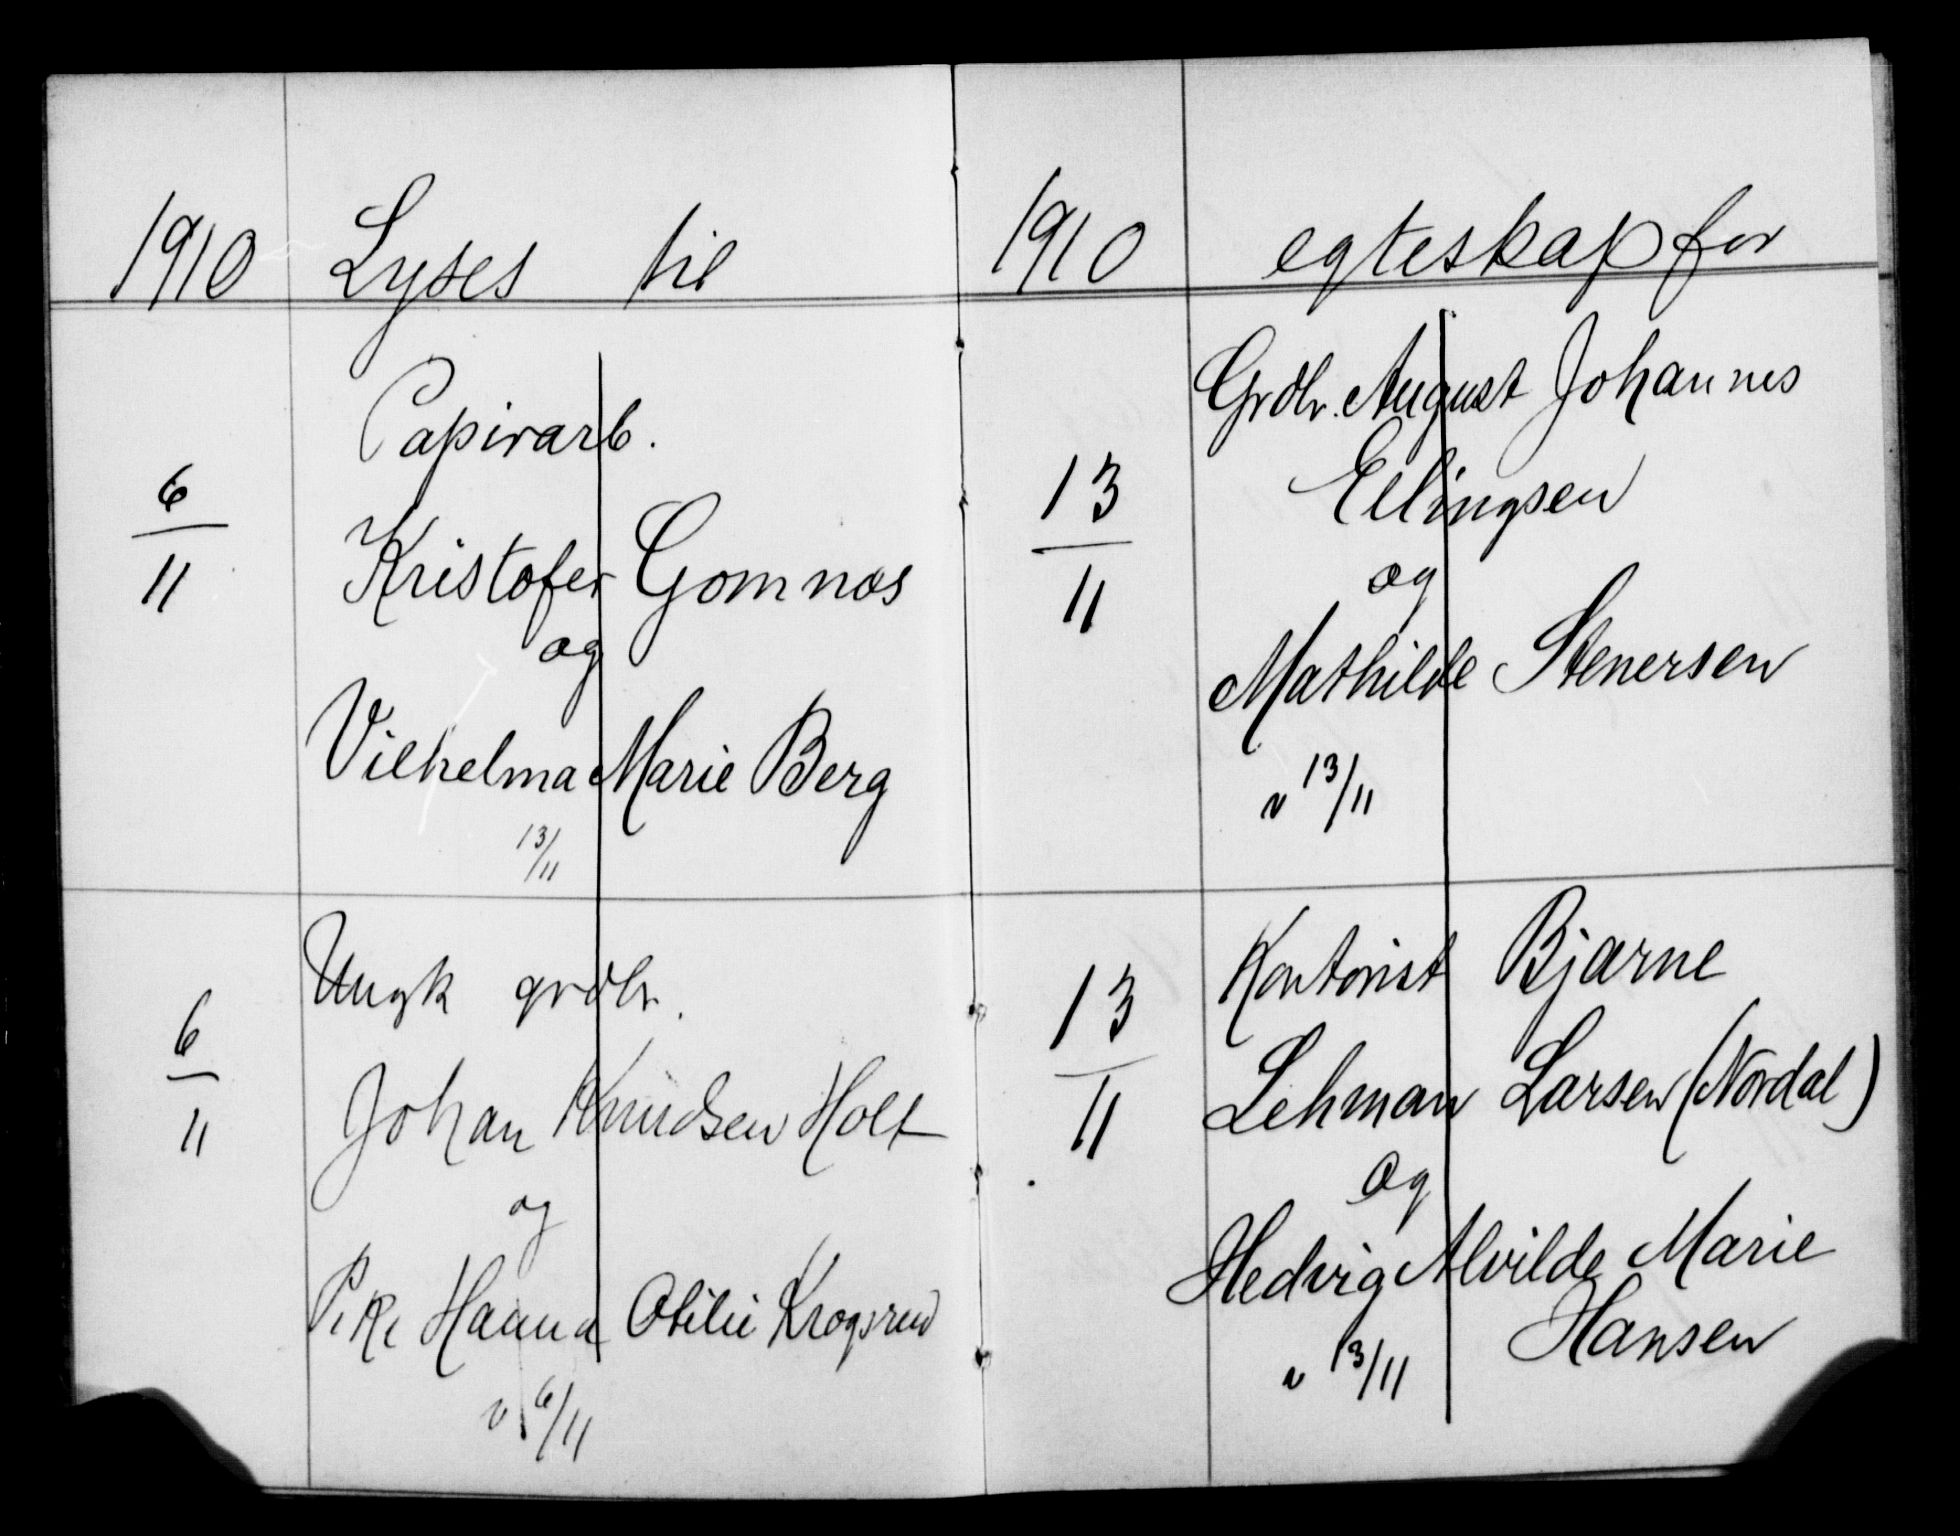 1910 Lyses til
6/11
Papirarb.
Kristofer Gomnæs
og
Vilhelma Marie Berg
13/11
6/11
Ungk grdbr.
Johan Knudsen Holt
og
Pike Hanna Otilie Krogsrud
v 6/11
1910 egteskap for
13/11
Grdbr. August Johannes
Ellingsen
og
Mathilde Stenersen
v 13/11
13/11
Kontorist Bjarne
Lehman Larsen (Nordal)
og
Hedvig Alvilde Marie
Hansen
v 13/11